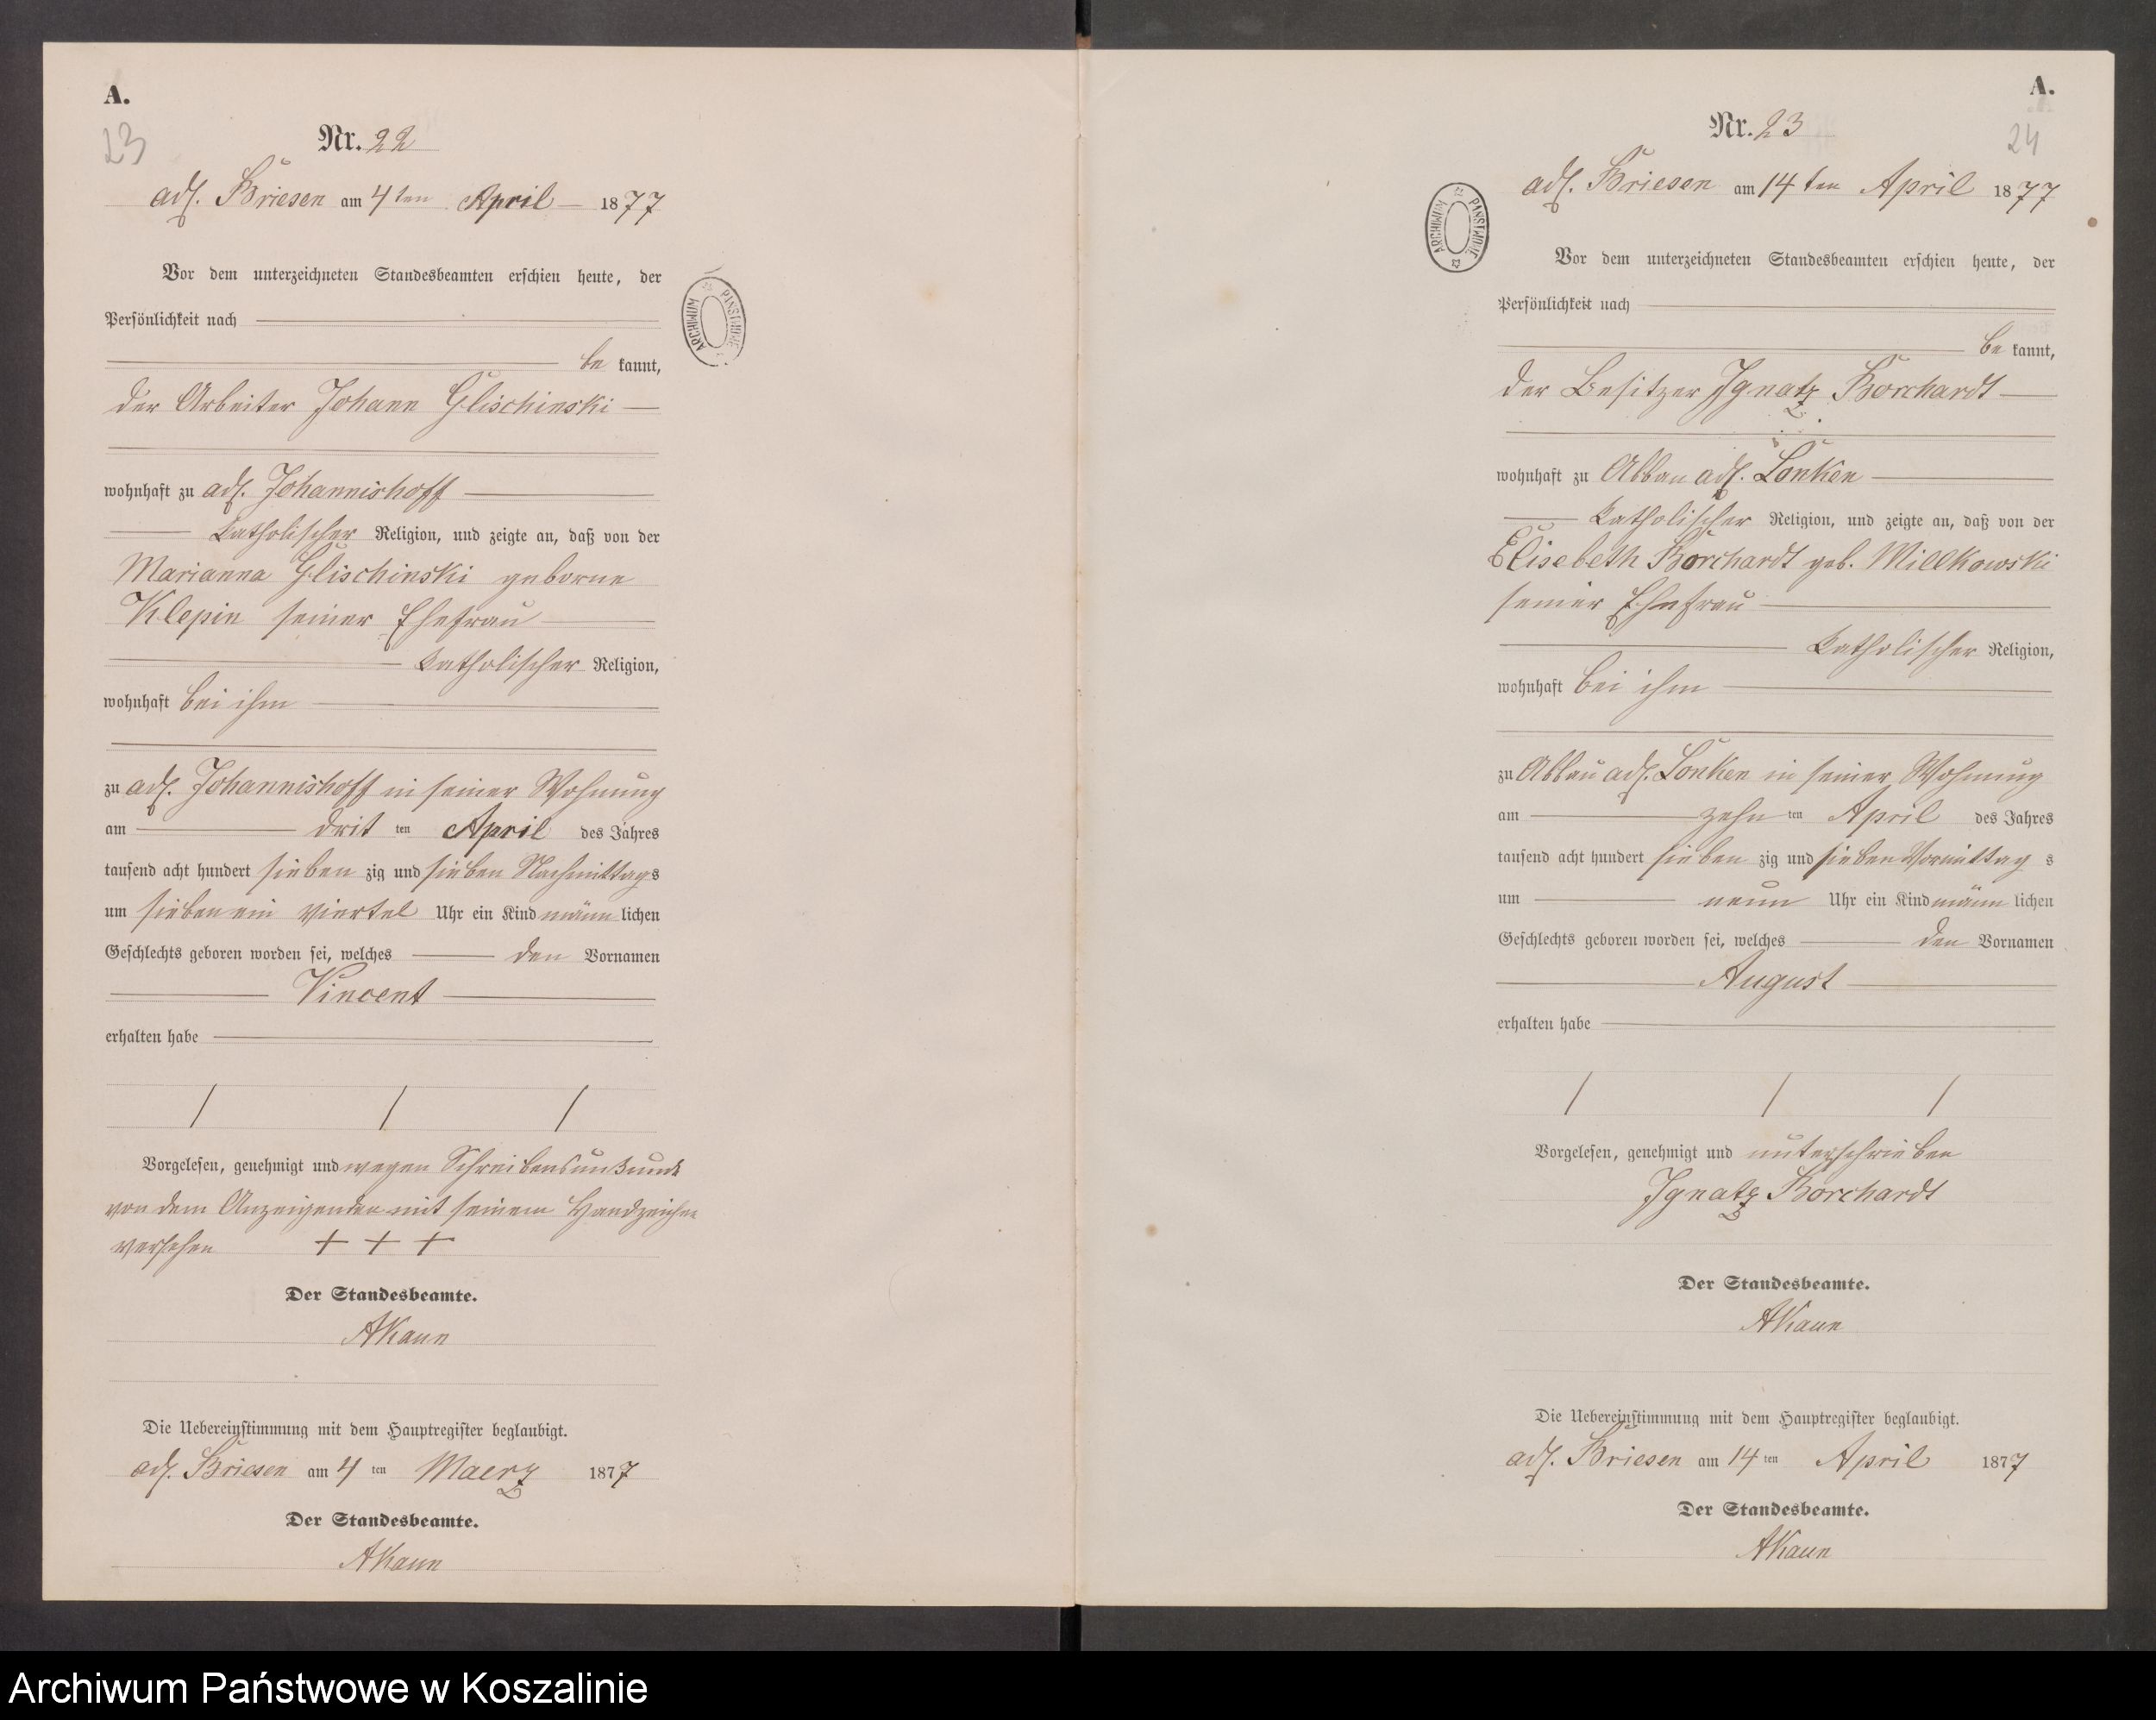 A.
23
Nr. 22
adl. Briesen am 4ten April 1877
Vor dem unterzeichneten Standesbeamten erschien heute, der
Persönlichkeit nach
be kannt,
der Arbeiter Johann Glischinski
wohnhaft zu adl. Johannishoff
katholischer Religion, und zeigte an, daß von der
Marianna Glischinski geborne
Klepin seiner Ehefrau
katholischer Religion,
wohnhaft bei ihm
zu adl. Johannishoff in seiner Wohnung
am drit ten April des Jahres
tausend acht hundert sieben zig und sieben Nachmittags
um sieben ein viertel Uhr ein Kind männ lichen
Geschlechts geboren worden sei, welches den Vornamen
Vincent
erhalten habe
Vorgelesen, genehmigt und wegen Schreibensunkunde
von dem Anzeigenden mit seinem Handzeichen
versehen + + +
Der Standesbeamte.
AKaun
Die Uebereinstimmung mit dem Hauptregister beglaubigt.
adl. Briesen am 4 ten Maerz 1877
Der Standesbeamte.
AKaun
A.
24
Nr. 23
adl. Briesen am 14ten April 1877
ARCHIWUM PAŃSTWOWE
Vor dem unterzeichneten Standesbeamten erschien heute, der
Persönlichkeit nach
be kannt,
der Besitzer Ignatz Borchardt
wohnhaft zu Abbau adl. Lonken
katholischer Religion, und zeigte an, daß von der
Elisebeth Borchardt geb. Millkowski
seiner Ehefrau
katholischer Religion,
wohnhaft bei ihm
zu Abbau adl. Lonken in seiner Wohnung
am zehn ten April des Jahres
tausend acht hundert sieben zig und sieben Vormittag s
um neun Uhr ein Kind männ lichen
Geschlechts geboren worden sei, welches den Vornamen
August
erhalten habe
Vorgelesen, genehmigt und unterschrieben
Ignatz Borchardt
Der Standesbeamte.
AKaun
Die Uebereinstimmung mit dem Hauptregister beglaubigt.
adl. Briesen am 14 ten April 1877
Der Standesbeamte.
AKaun
Archiwum Państwowe w Koszalinie